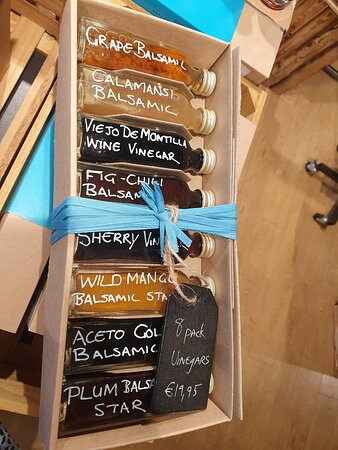 GRAPE BALSAMIC
CALAMANSI
BALSAMIC
VIEJO DE MONTILLA
WINE VINEGAR
FIG-CHILI
SHERRY
WILD MANGO
BALSAMIC STAR
ACETO
BALSAMIC
PLUM
STAR
8 pack
VINEGARS
€19,95